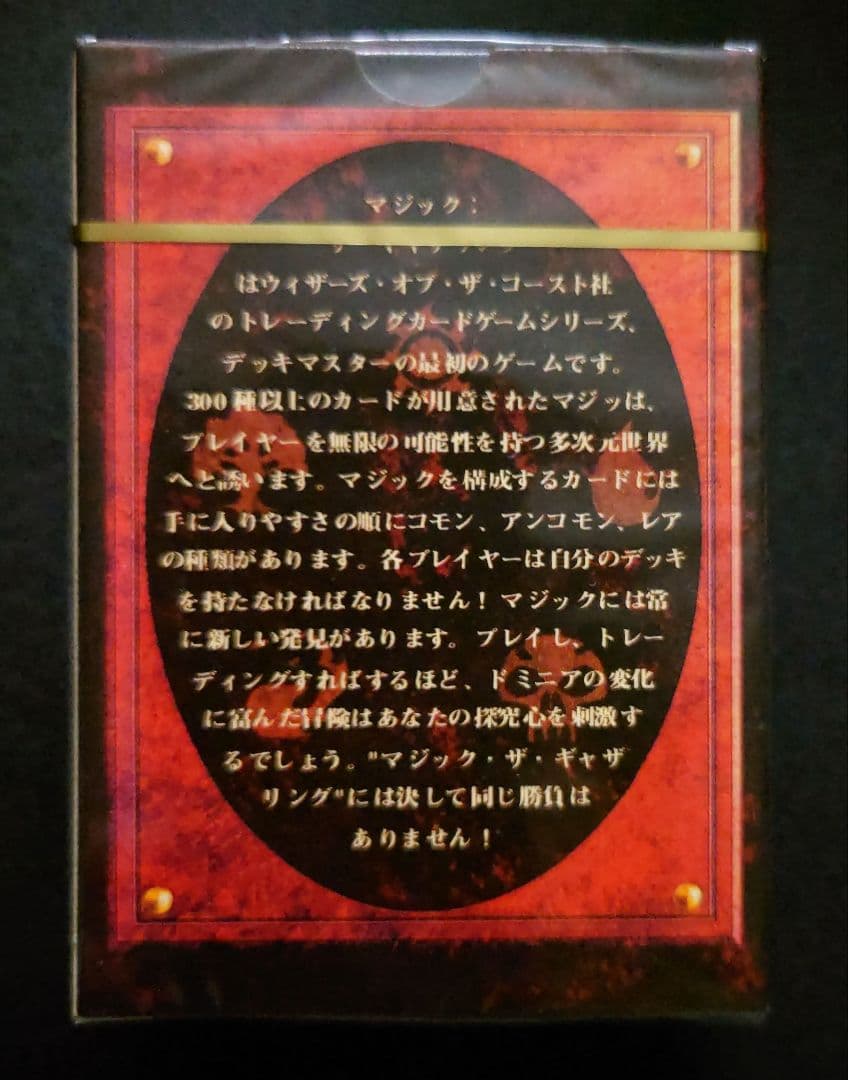 マジック：
はウィザーズ・オブ・ザ・コースト社
のトレーディングカードゲームシリーズ、
デッキマスターの最初のゲームです。
300種以上のカードが用意されたマジッは、
プレイヤーを無限の可能性を持つ多次元世界
へと誘います。マジックを構成するカードには
手に入りやすさの順にコモン、アンコモン、レア
の種類があります。各プレイヤーは自分のデッキ
を持たなければなりません！マジックには常
に新しい発見があります。プレイし、トレー
ディングすればするほど、ドミニアの変化
に富んだ冒険はあなたの探究心を刺激す
るでしょう。"マジック・ザ・ギャザ
リング"には決して同じ勝負は
ありません！